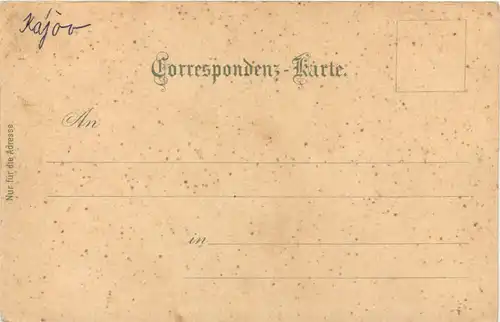 Kájov
Correspondenz-Karte.
An
in
Nur für die Adresse